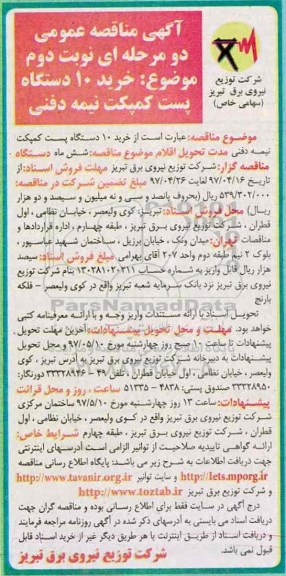 آگهی مناقصه عمومی
دو مرحله ای نوبت دوم
موضوع: خرید ۱۰ دستگاه
پست کمپکت نیمه دفنی
شرکت توزیع
نیروی برق تبریز
(سهامی خاص)
موضوع مناقصه: عبارت است از خرید ۱۰ دستگاه پست کمپکت
نیمه دفنی مدت تحویل اقلام موضوع مناقصه: شش ماه دستگاه
مناقصه گزار: شرکت توزیع نیروی برق تبریز مهلت فروش اسناد: از
تاریخ ۹۷/۰۴/۱۶ لغایت ۹۷/۰۴/۲۶ مبلغ تضمین شرکت در مناقصه:
۵۳۹/۳۰۲/۰۰۰ ریال (بحروف پانصد و سی و نه میلیون و سیصد و دو هزار
ریال) محل فروش اسناد: تبریز: کوی ولیعصر، خیابان نظامی، اول
قطران، شرکت توزیع نیروی برق تبریز، طبقه چهارم، اداره قراردادها و
مناقصات تهران: میدان ونک، خیابان برزیل، ساختمان شهید عباسپور،
بلوک ۲ نیم طبقه دوم واحد ۲۰۷ آقای بهرامی مبلغ فروش اسناد: سیصد
هزار ریال قابل واریز به شماره حساب ۱۳۰۲۸۱۰۲۰۳۱۱ بنام شرکت توزیع
نیروی برق تبریز نزد بانک سرمایه شعبه تبریز واقع در کوی ولیعصر – فلکه
بارنج
تحویل اسناد با ارائه مستندات واریز وجه و با ارائه معرفینامه کتبی
خواهد بود. مهلت و محل تحویل پیشنهادات: آخرین مهلت تحویل
پیشنهادات تا ساعت ۱۰ صبح روز چهارشنبه مورخ ۹۷/۰۵/۱۰ و محل تحویل
پیشنهادات به دبیرخانه شرکت توزیع نیروی برق تبریز به آدرس تبریز، کوی
ولیعصر، خیابان نظامی، اول خیابان قطران، تلفن ۴۹ - ۳۳۳۲۸۹۴۶ دورنگار:
۳۳۳۲۸۹۵۰ صندوق پستی: ۴۸۳۸ - ۵۱۳۳۵ ساعت، روز و محل قرائت
پیشنهادات: ساعت ۱۳ روز چهارشنبه مورخ ۹۷/۵/۱۰ ساختمان مرکزی
شرکت توزیع نیروی برق تبریز واقع در کوی ولیعصر، خیابان نظامی، اول
قطران، شرکت توزیع نیروی برق تبریز، طبقه چهارم شرایط خاص:
ارائه گواهی تاییدیه صلاحیت از توانیر الزامی است آدرسهای اینترنتی
جهت دریافت اطلاعات به شرح زیر می باشد: پایگاه اطلاع رسانی مناقصه
http://iets.mporg.ir و سایت توانیر http://www.tavanir.org.ir
و شرکت توزیع برق تبریز http://www.toztab.ir
درج آگهی در سایت فقط برای اطلاع رسانی بوده و مناقصه گران جهت
دریافت اسناد می بایستی به آدرسهای ذکر شده در آگهی روزنامه مراجعه فرمایند
و دریافت اسناد از طریق اینترنت یا هر طریق دیگر غیر از خرید اسناد قابل
قبول نمی باشد.
شرکت توزیع نیروی برق تبریز
ParsNamadData